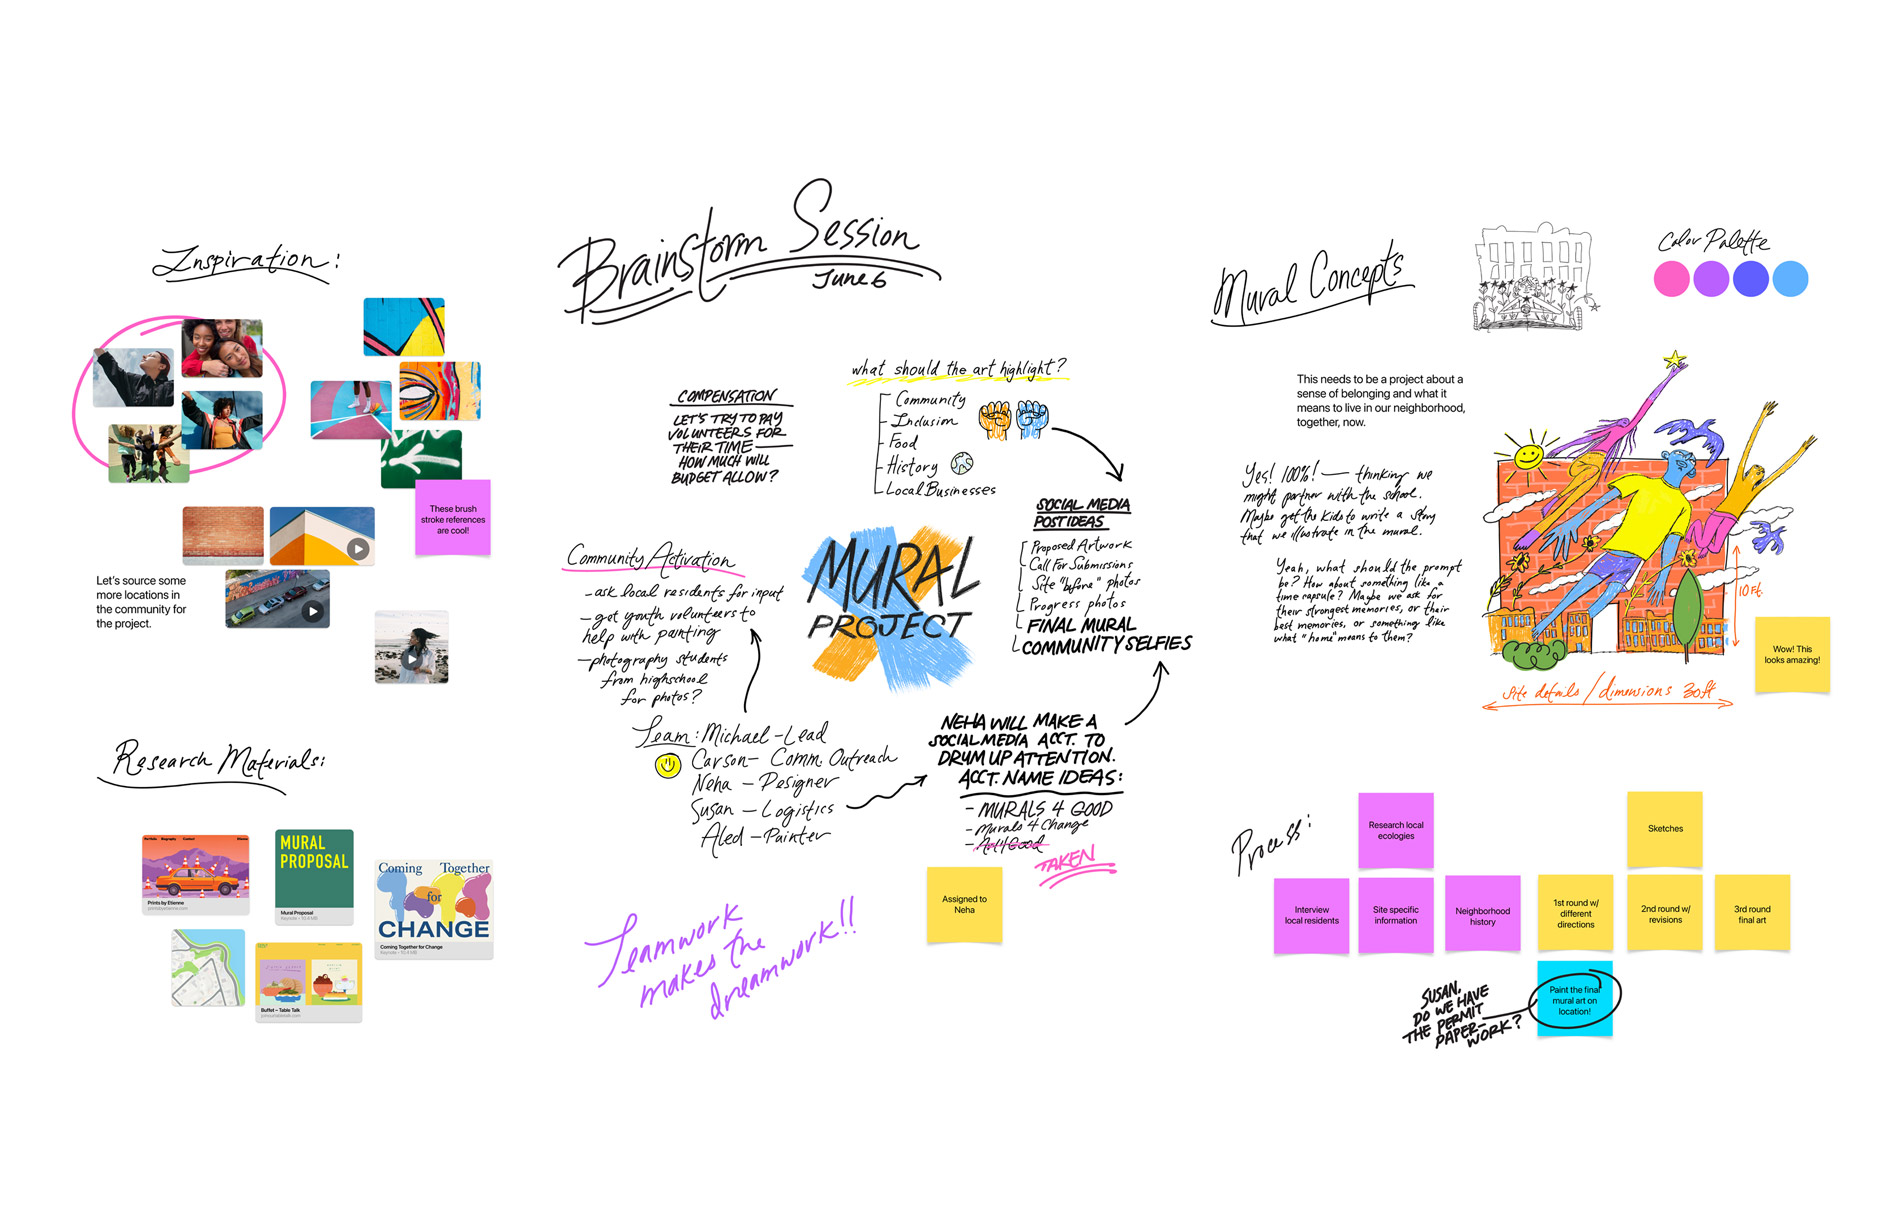 Inspiration:
These brush
stroke references
are cool!
Let's source some
more locations in
the community for
the project.
Research Materials:
Portfolio Biography Contact Etienne
Prints by Etienne
printsbyetienne.com
MURAL
PROPOSAL
Mural Proposal
Keynote · 10.4 MB
Coming Together
for
CHANGE
Coming Together for Change
Keynote · 10.4 MB
Buffet – Table Talk
Brainstorm Session
June 6
COMPENSATION
LET'S TRY TO PAY
VOLUNTEERS FOR
THEIR TIME —
HOW MUCH WILL
BUDGET ALLOW?
what should the art highlight?
Community
- Inclusion
- Food
- History
Local Businesses
SOCIAL MEDIA
POST IDEAS
Proposed Artwork
Call For Submissions
Site "before" photos
Progress photos
FINAL MURAL
COMMUNITY SELFIES
Community Activation
- ask local residents for input
- get youth volunteers to
help with painting
- photography students
from highschool
for photos?
MURAL
PROJECT
Team: Michael - Lead
Carson - Comm. Outreach
Neha - Designer
Susan - Logistics
Aled - Painter
NEHA WILL MAKE A
SOCIAL MEDIA ACCT. TO
DRUM UP ATTENTION.
ACCT. NAME IDEAS:
- MURALS 4 GOOD
- Murals 4 Change
- Art 4 Good
TAKEN
Assigned to
Neha
Teamwork
makes the
dreamwork!!
Mural Concepts
Color Palette
This needs to be a project about a
sense of belonging and what it
means to live in our neighborhood,
together, now.
Yes! 100%! — thinking we
might partner with the school.
Maybe get the kids to write a story
that we illustrate in the mural.
Yeah, what should the prompt
be? How about something like a
time capsule? Maybe we ask for
their strongest memories, or their
best memories, or something like
what "home" means to them?
10 Ft.
Site details / dimensions 30ft
Wow! This
looks amazing!
Process:
Research local
ecologies
Interview
local residents
Site specific
information
Neighborhood
history
Sketches
1st round w/
different
directions
2nd round w/
revisions
3rd round
final art
Paint the final
mural art on
location!
SUSAN,
DO WE HAVE
THE PERMIT
PAPER-
WORK?